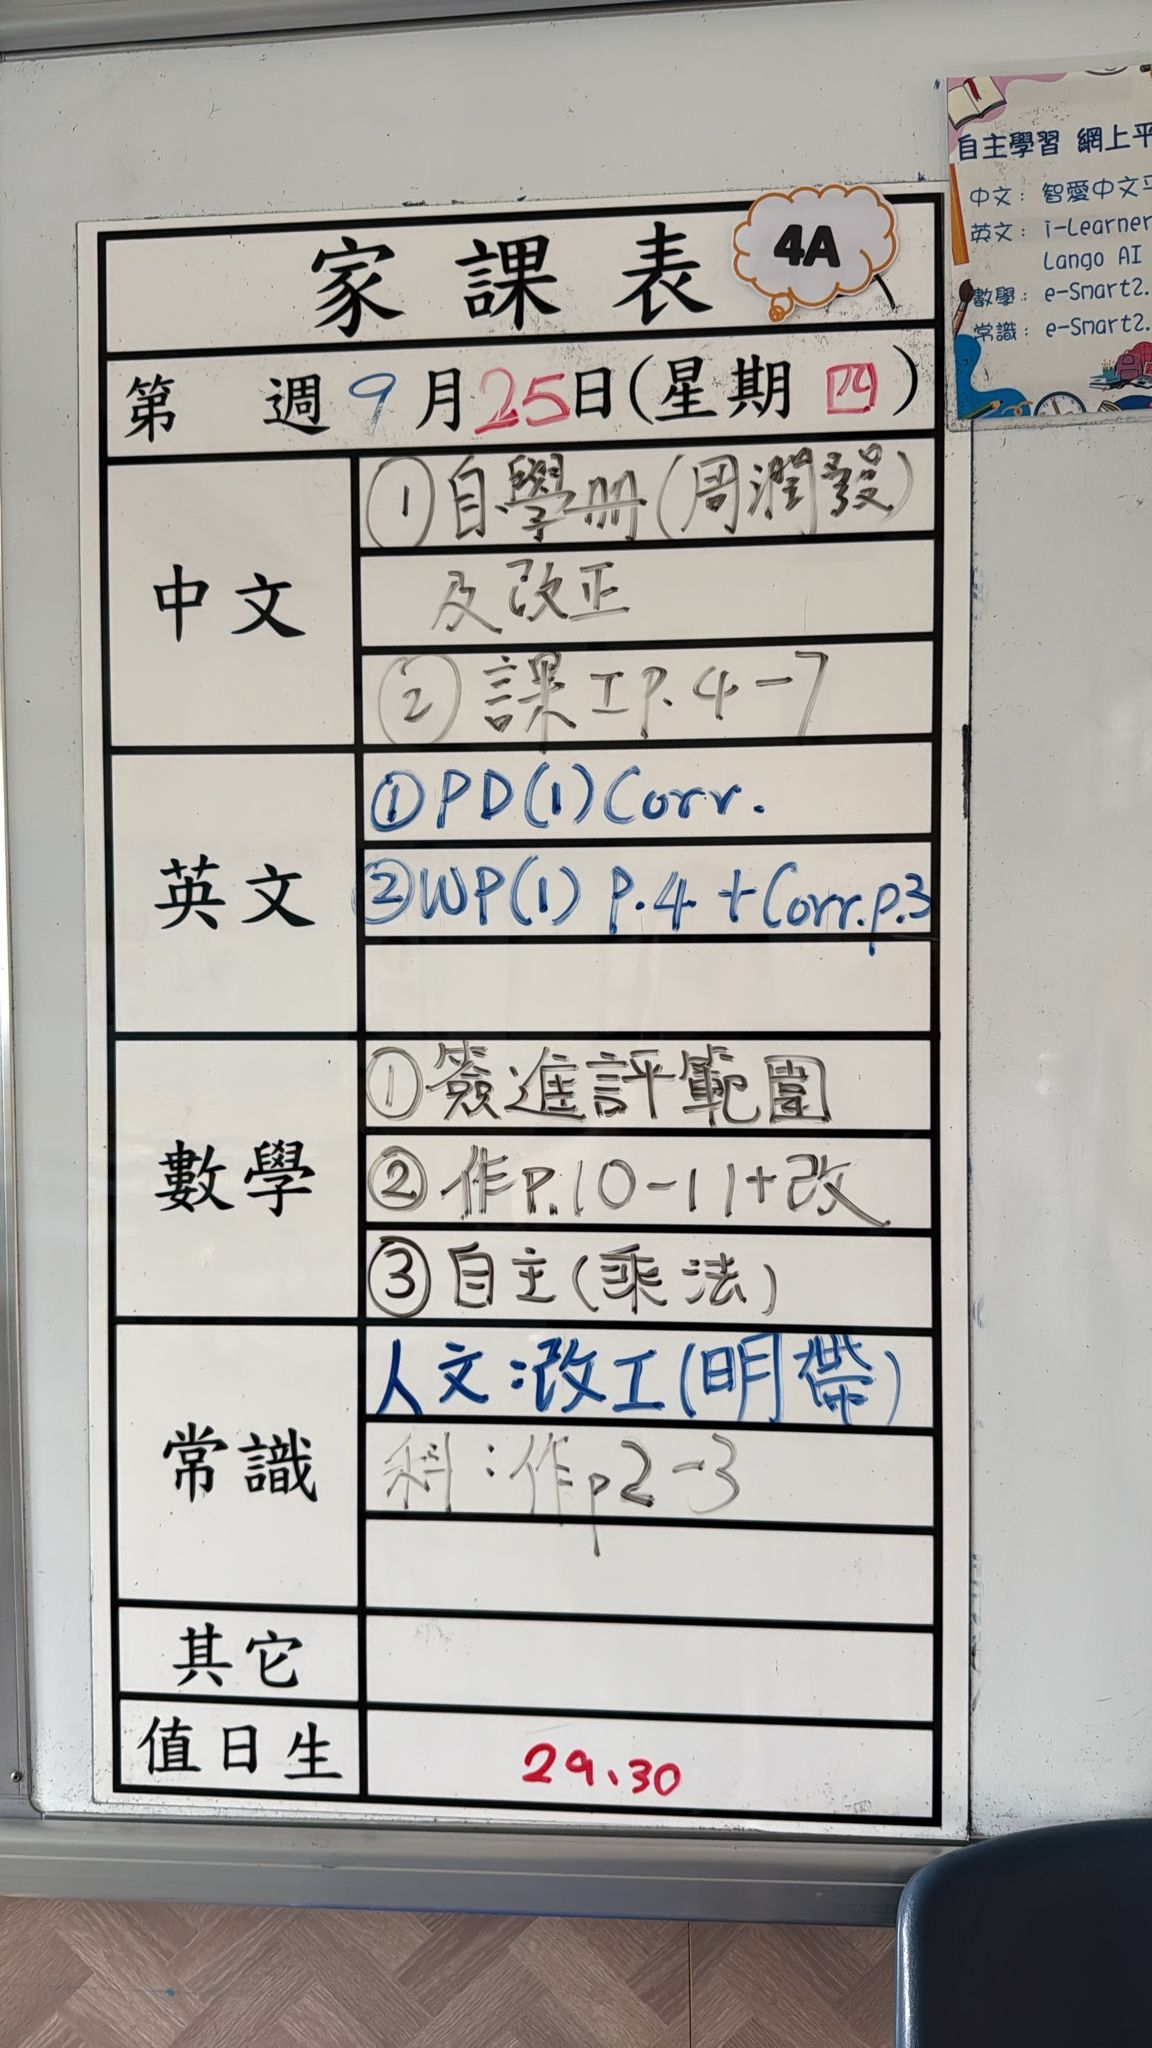 家課表
4A
第 週 9月25日(星期四)
中文
①自學册(周潤發)
及改正
②課工P.4-7
英文
①PD(1)Corr.
②WP(1) P.4 + Corr.p.3
數學
①簽進評範圍
②作P.10-11+改
③自主(乘法)
常識
人文:改工(明帶)
科:作p2-3
其它
值日生
29、30
自主學習 網上平
中文: 智愛中文平
英文: i-Learner
Lango AI
數學: e-Smart2.
常識: e-Smart2.